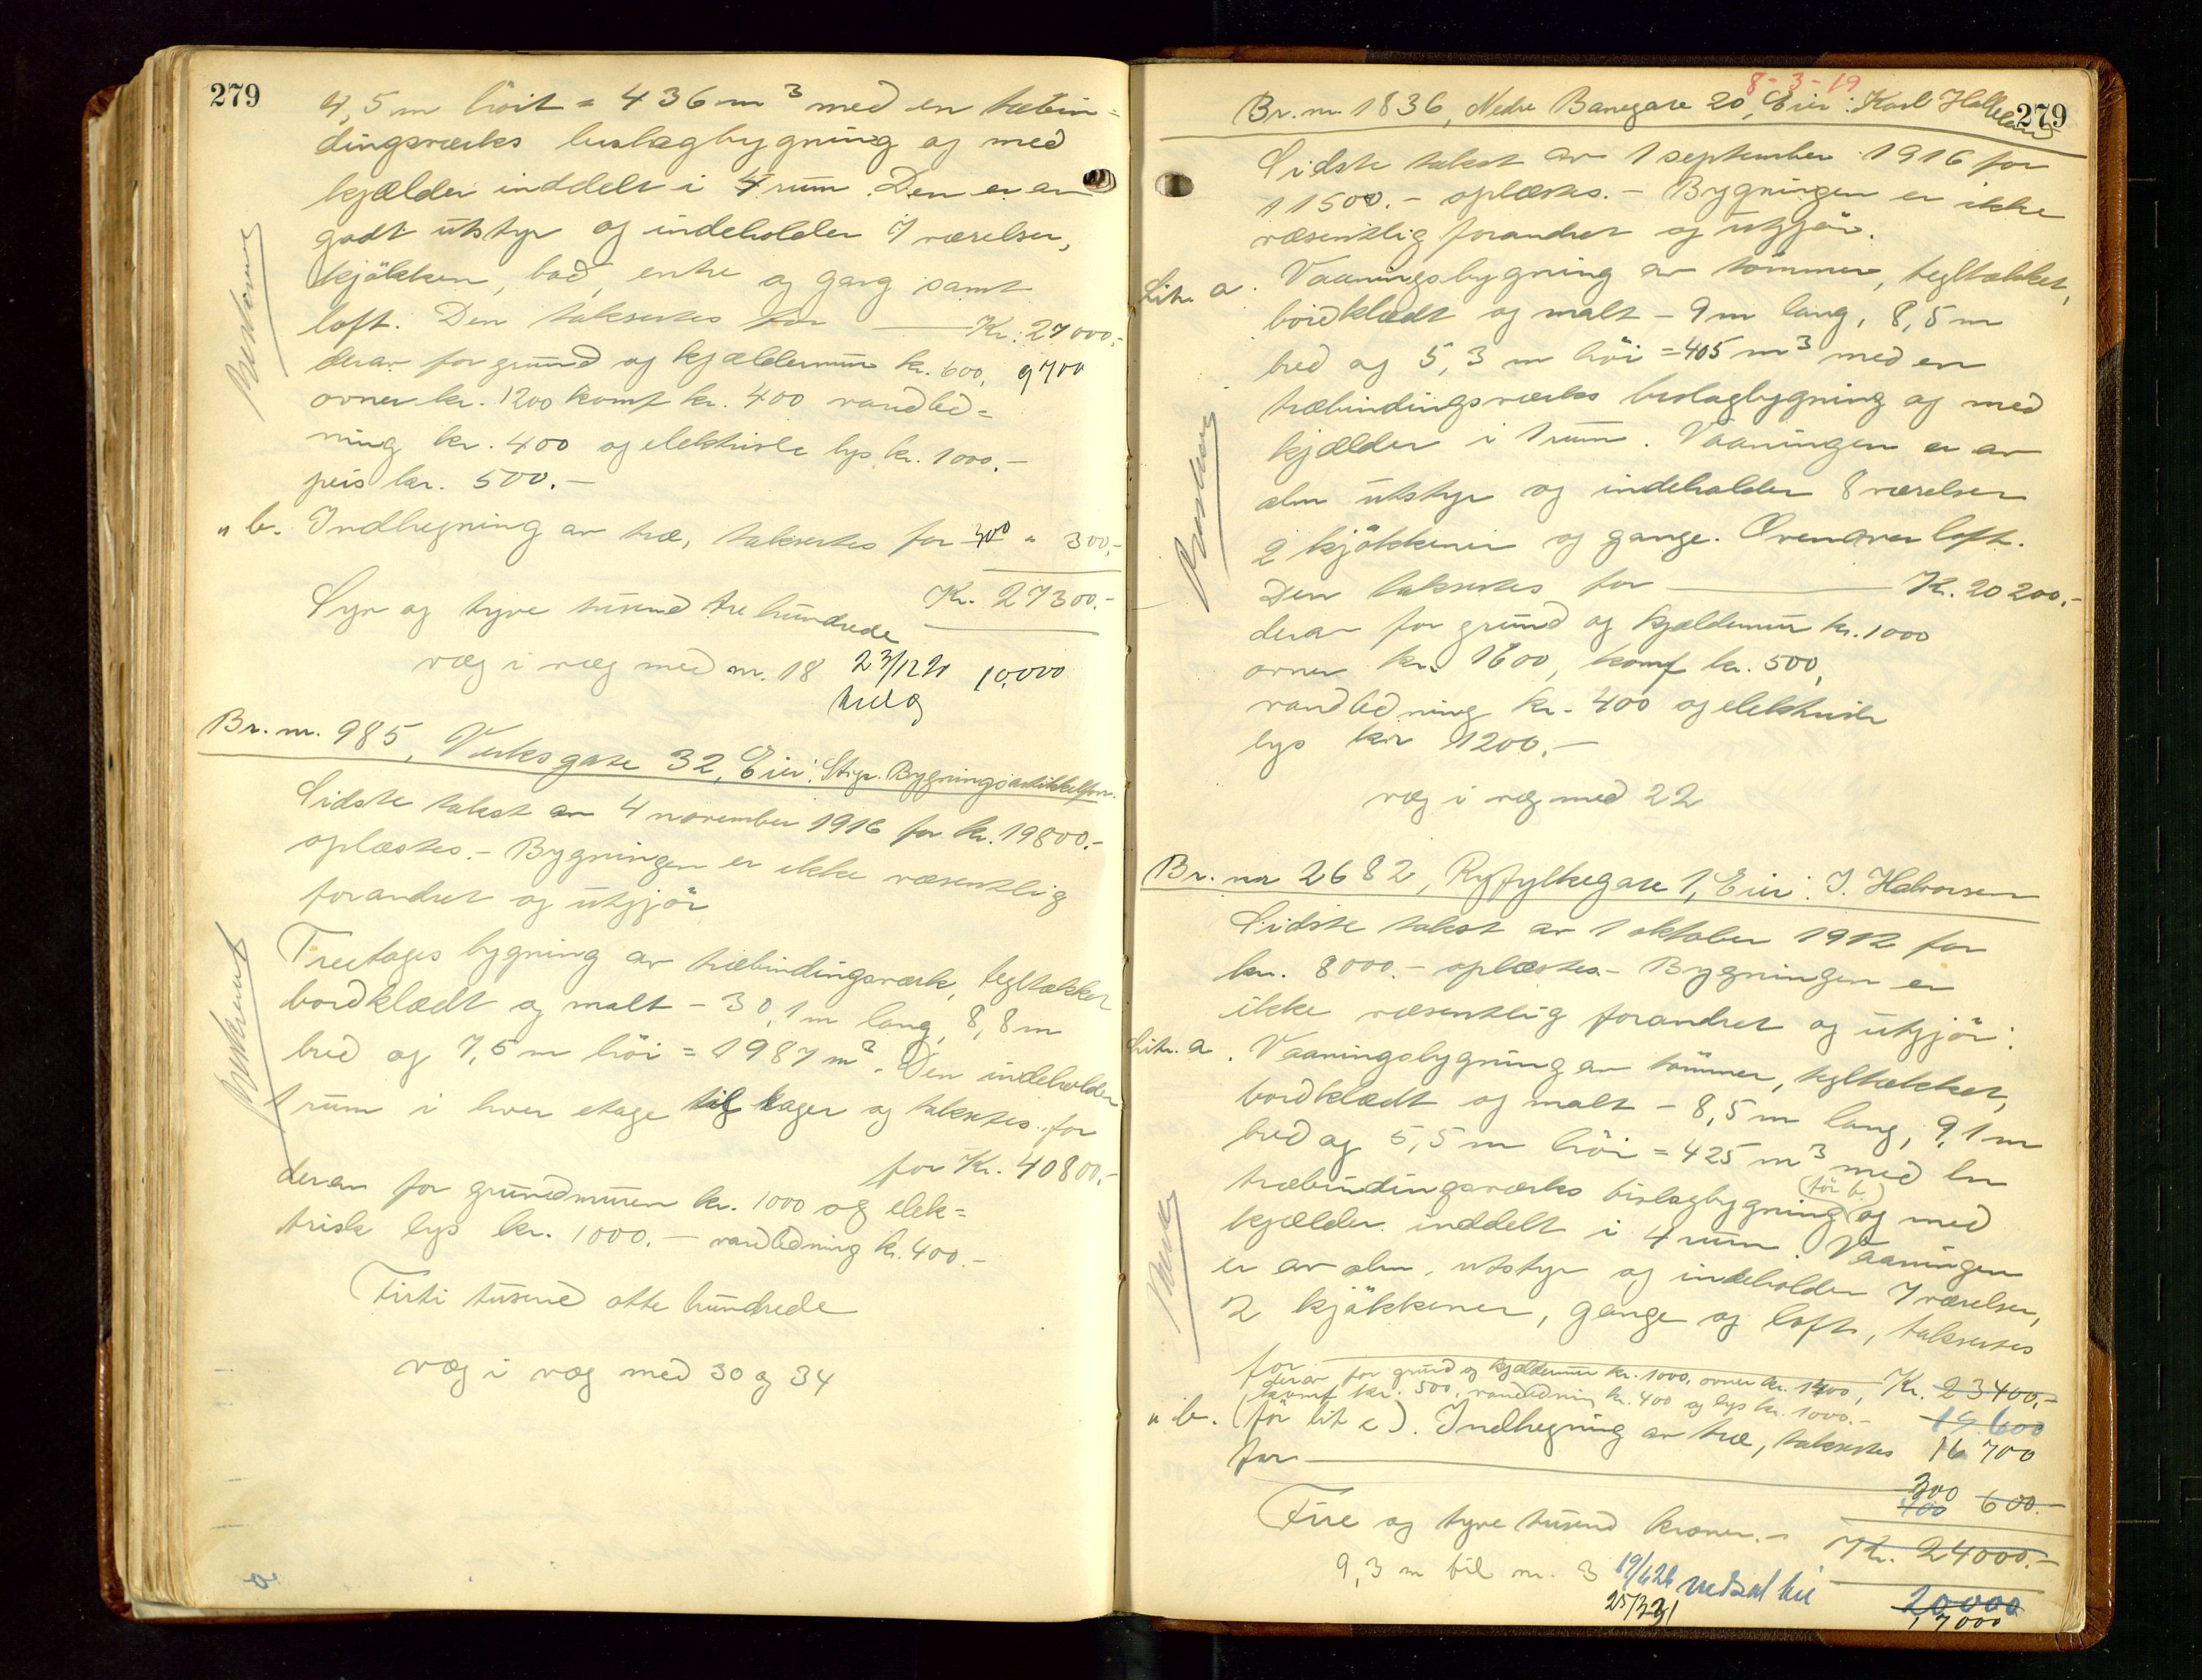 279
4,5 m höit = 436 m³ med en træbin=
dingsværks bislagbygning og med
kjælder inddelt i 4 rum. Den er av
godt utstyr og indeholder 7 værelser,
kjökken, bad, entre og gang samt
loft. Den taksertes for — Kr. 27000.-
derav for grund og kjældermur kr. 600, 9700
ovner kr. 1200 komf kr. 400 vandled=
ning kr. 400 og elektrisk lys kr. 1000.-
peis kr. 500.-
" b. Indhegning av træ, taksertes for 300 " 300.-
Kr. 27300.-
Syv og tyve tusend tre hundrede
væg i væg med nr. 18 23/12 21 10,000
Br. nr. 985, Verksgate 32, Eier: Stvgr. Bygningsartikkelforr.
Sidste takst av 4 november 1916 for kr. 19800.-
oplæstes.- Bygningen er ikke væsentlig
forandret og utgjör
Treetages bygning av træbindingsværk, tegltækket
bordklædt og malt - 30,1 m lang, 8,8 m
bred og 7,5 m höi = 1987 m³. Den indeholder
1 rum i hver etage til lager og taksertes for
for Kr. 40800.-
derav for grundmuren kr. 1000 og elek=
trisk lys kr. 1000.- vandledning kr. 400.-
Firti tusend otte hundrede
væg i væg med 30 og 34
8-3-19
279
Br. nr. 1836, Nedre Banegate 20, Eier: Karl Halleland
Sidste takst av 1 september 1916 for
11500.- oplæstes.- Bygningen er ikke
væsentlig forandret og utgjör.
Litr. a. Vaaningsbygning av tömmer, tegltækket,
bordklædt og malt - 9 m lang, 8,5 m
bred og 5,3 m höi = 405 m³ med en
træbindingsværks bislagbygning og med
kjælder i 1 rum. Vaaningen er av
alm utstyr og indeholder 8 værelser
2 kjökkener og gange. Ovenover loft.
Den taksertes for — Kr. 20200.-
derav for grund og kjældermur kr. 1000
ovner kr. 1600, komf kr. 500,
vandledning kr. 400 og elektrisk
lys kr 1200.-
væg i væg med 22
Br. nr 2682, Ryfylkegate 1, Eier: I. Halvorsen
Sidste takst av 1 oktober 1912 for
kr. 8000.- oplæstes.- Bygningen er
ikke væsentlig forandret og utgjör:
Litr. a. Vaaningsbygning av tömmer, tegltækket,
bordklædt og malt - 8,5 m lang, 9,1 m
bred og 5,5 m höi = 425 m³ med en
træbindingsværks bislagbygning (för b.) og med
kjælder inddelt i 4 rum. Vaaningen
er av alm. utstyr og indeholder 7 værelser,
2 kjökkener, gange og loft, taksertes
for — Kr. 23400.-
derav for grund og kjældermur kr. 1000, ovner kr. 1400,
komf kr. 500, vandledning kr. 400 og lys kr. 1000.-
19.600
" b. (för lit c). Indhegning av træ, taksertes 16 700
for — 300
400 600.-
Fire og tyve tusend kroner.- Kr. 24000.-
9,3 m til nr. 3 19/4 26 nedsat til 20000
25/3 31 17000